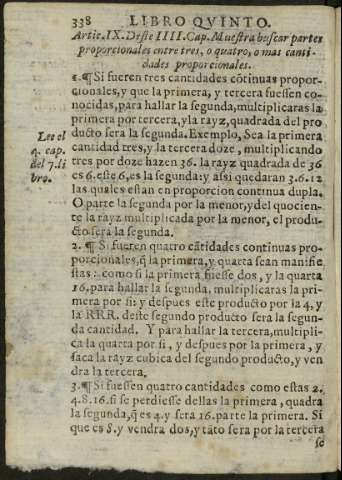 338 LIBRO QVINTO.
Artic. IX. Deste IIII. Cap. Muestra buscar partes
proporcionales entre tres, o quatro, o mas canti-
dades proporcionales.
1.¶ Si fueren tres cantidades cõtinuas propor-
cionales, y que la primera, y tercera fuessen co-
nocidas, para hallar la segunda, multiplicaras la
primera por tercera, y la rayz, quadrada del pro
Lee el
4. cap.
del 7. li
bro.
ducto sera la segunda. Exemplo, Sea la primera
cantidad tres, y la tercera doze, multiplicando
tres por doze hazen 36. la rayz quadrada de 36
es 6. este 6, es la segunda: y assi quedaran 3.6.12
las quales estan en proporcion continua dupla.
O parte la segunda por la menor, y del quocien-
te la rayz multiplicada por la menor, el produ-
cto sera la segunda.
2.¶ Si fueren quatro cãtidades continuas pro-
porcionales, q̃ la primera, y quarta sean manifie
stas: como si la primera fuesse dos, y la quarta
16. para hallar la segunda, multiplicaras la pri-
mera por si: y despues este producto por la 4, y
la RRR. deste segundo producto sera la segun-
da cantidad. Y para hallar la tercera, multipli-
ca la quarta por si, y despues por la primera, y
saca la rayz cubica del segundo producto, y ven
dra la tercera.
3.¶ Si fuessen quatro cantidades como estas 2.
4.8.16. si se perdiesse dellas la primera, quadra
la segunda, q̃ es 4. y sera 16. parte la primera. Si
que es 8. y vendra dos, y tãto sera por la tercera
se